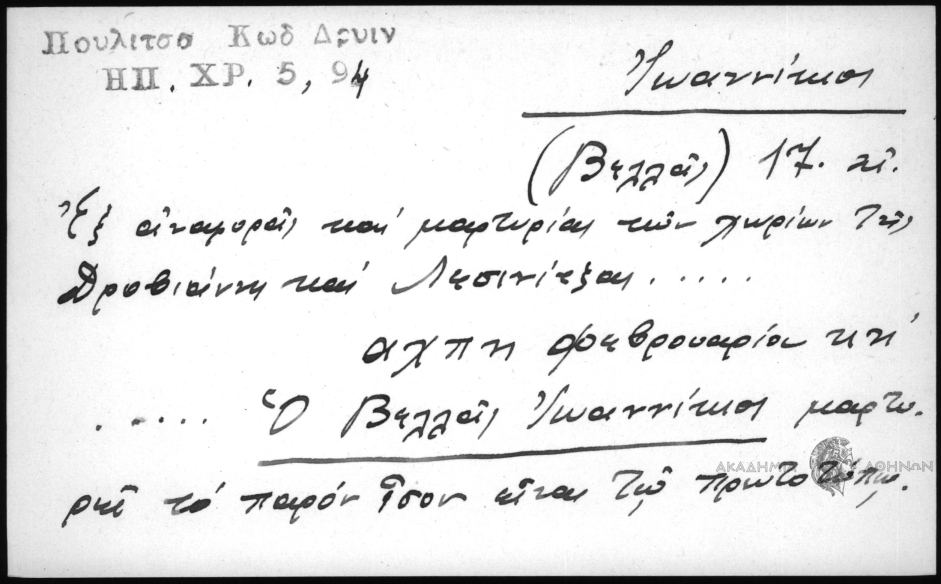 Πουλιτσα Κωδ Δρυιν
ΗΠ. ΧΡ. 5, 94
Ἰωαννίκιος
(Βελλᾶς) 17. αἰ.
Ἐξ ἀναφορᾶς καὶ μαρτυρίας τῶν χωρίων τῆς
Δροβιάνης καὶ Λεσινίτζας .....
αχπη φεβρουαρίου κη'
..... Ὁ Βελλᾶς Ἰωαννίκιος μαρτυ-
ρεῖ τὸ παρὸν ἴσον εἶναι τῷ πρωτοτύπῳ.
ΑΚΑΔΗΜΙΑ ΑΘΗΝΩΝ